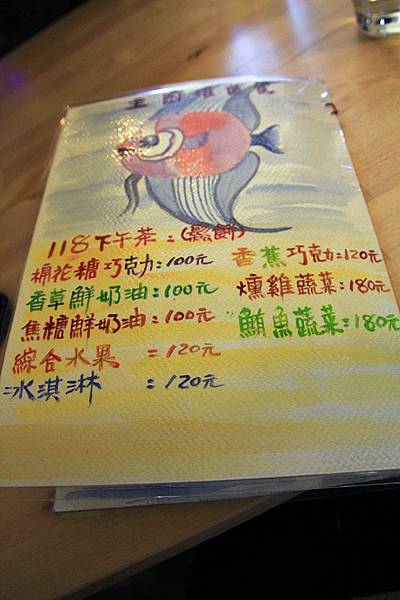 118下午茶:(鬆餅)
棉花糖巧克力:100元
香草鮮奶油:100元
焦糖鮮奶油:100元
綜合水果 =120元
冰淇淋 :120元
香蕉巧克力:120元
燻雞蔬菜:180元
鮪魚蔬菜:180元